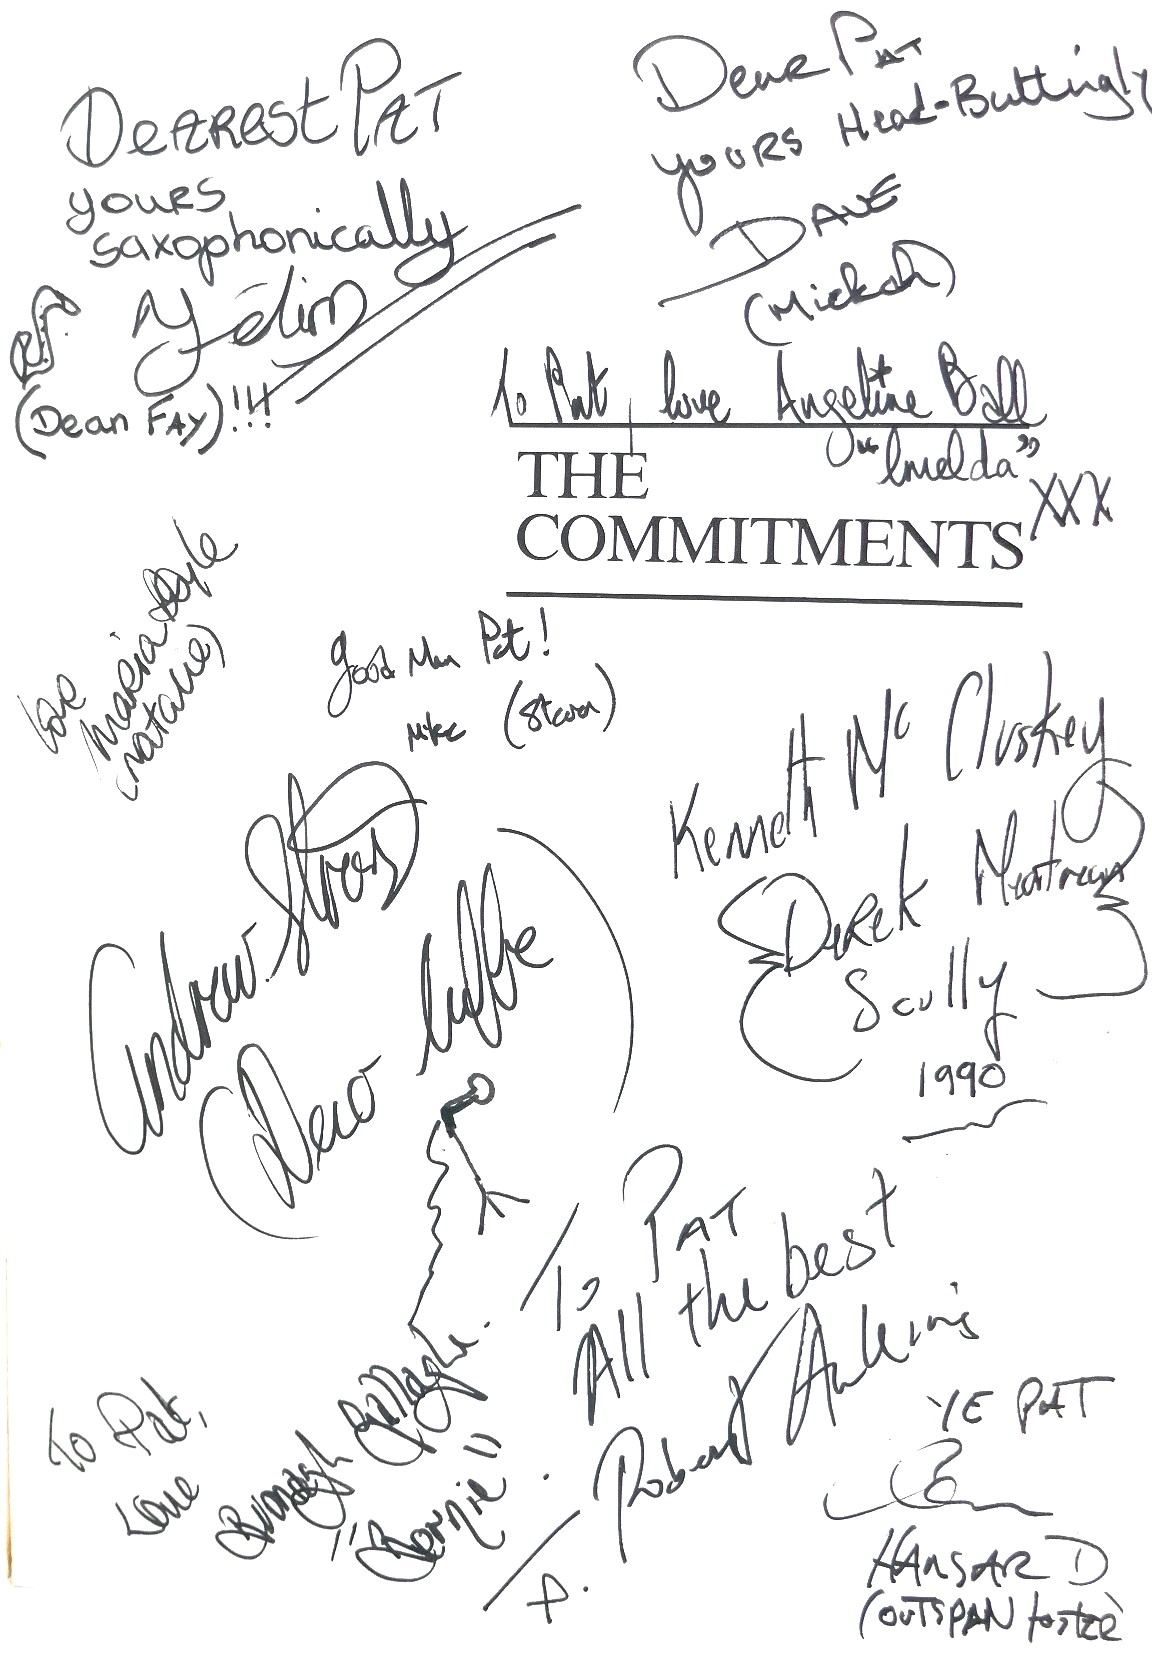 DEAREST PAT
yours
saxophonically
Félim
(Dean FAY)!!!
Dear PAT
yours Head-Buttingly
DAVE
(Mickah)
To Pat, love Angeline Ball
"Imelda"
XXX
THE
COMMITMENTS
love
Maria Doyle
(natalie)
Good Man Pat!
Mike (Steven)
Kenneth Mc Cluskey
Derek Meatman
Scully
1990
Andrew Strong
Deco Cuffe
To PAT
All the best
Robert Arkins
To Pat,
Love
Bronagh Gallagher.
"Bernie"
YE PAT
HANSARD
(OUTSPAN foster)